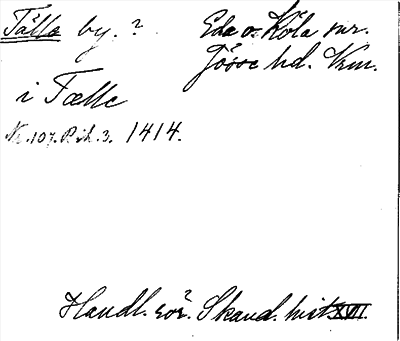 Tälle by. ? Eda o. Köla snr.
Jösse hd. Vrm.
i Tælle
Nr. 107. P. ih. 3. 1414.
Handl. rör? Skand. hist. XVII.